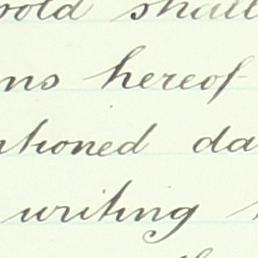 shall
hereof
tioned da
writing